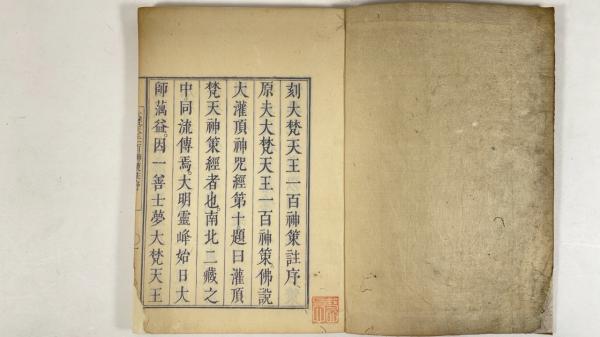 刻大梵天王一百神策註序
原夫大梵天王一百神策佛說
大灌頂神咒經第十題曰灌頂
梵天神策經者也。南北二藏之
中同流傳焉。大明靈峰始日大
師蕅益。因一善士夢大梵天王